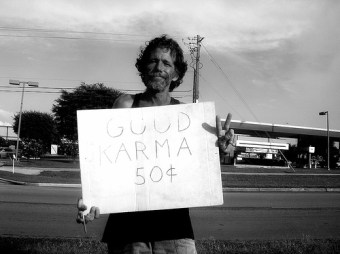 GOOD
KARMA
50¢